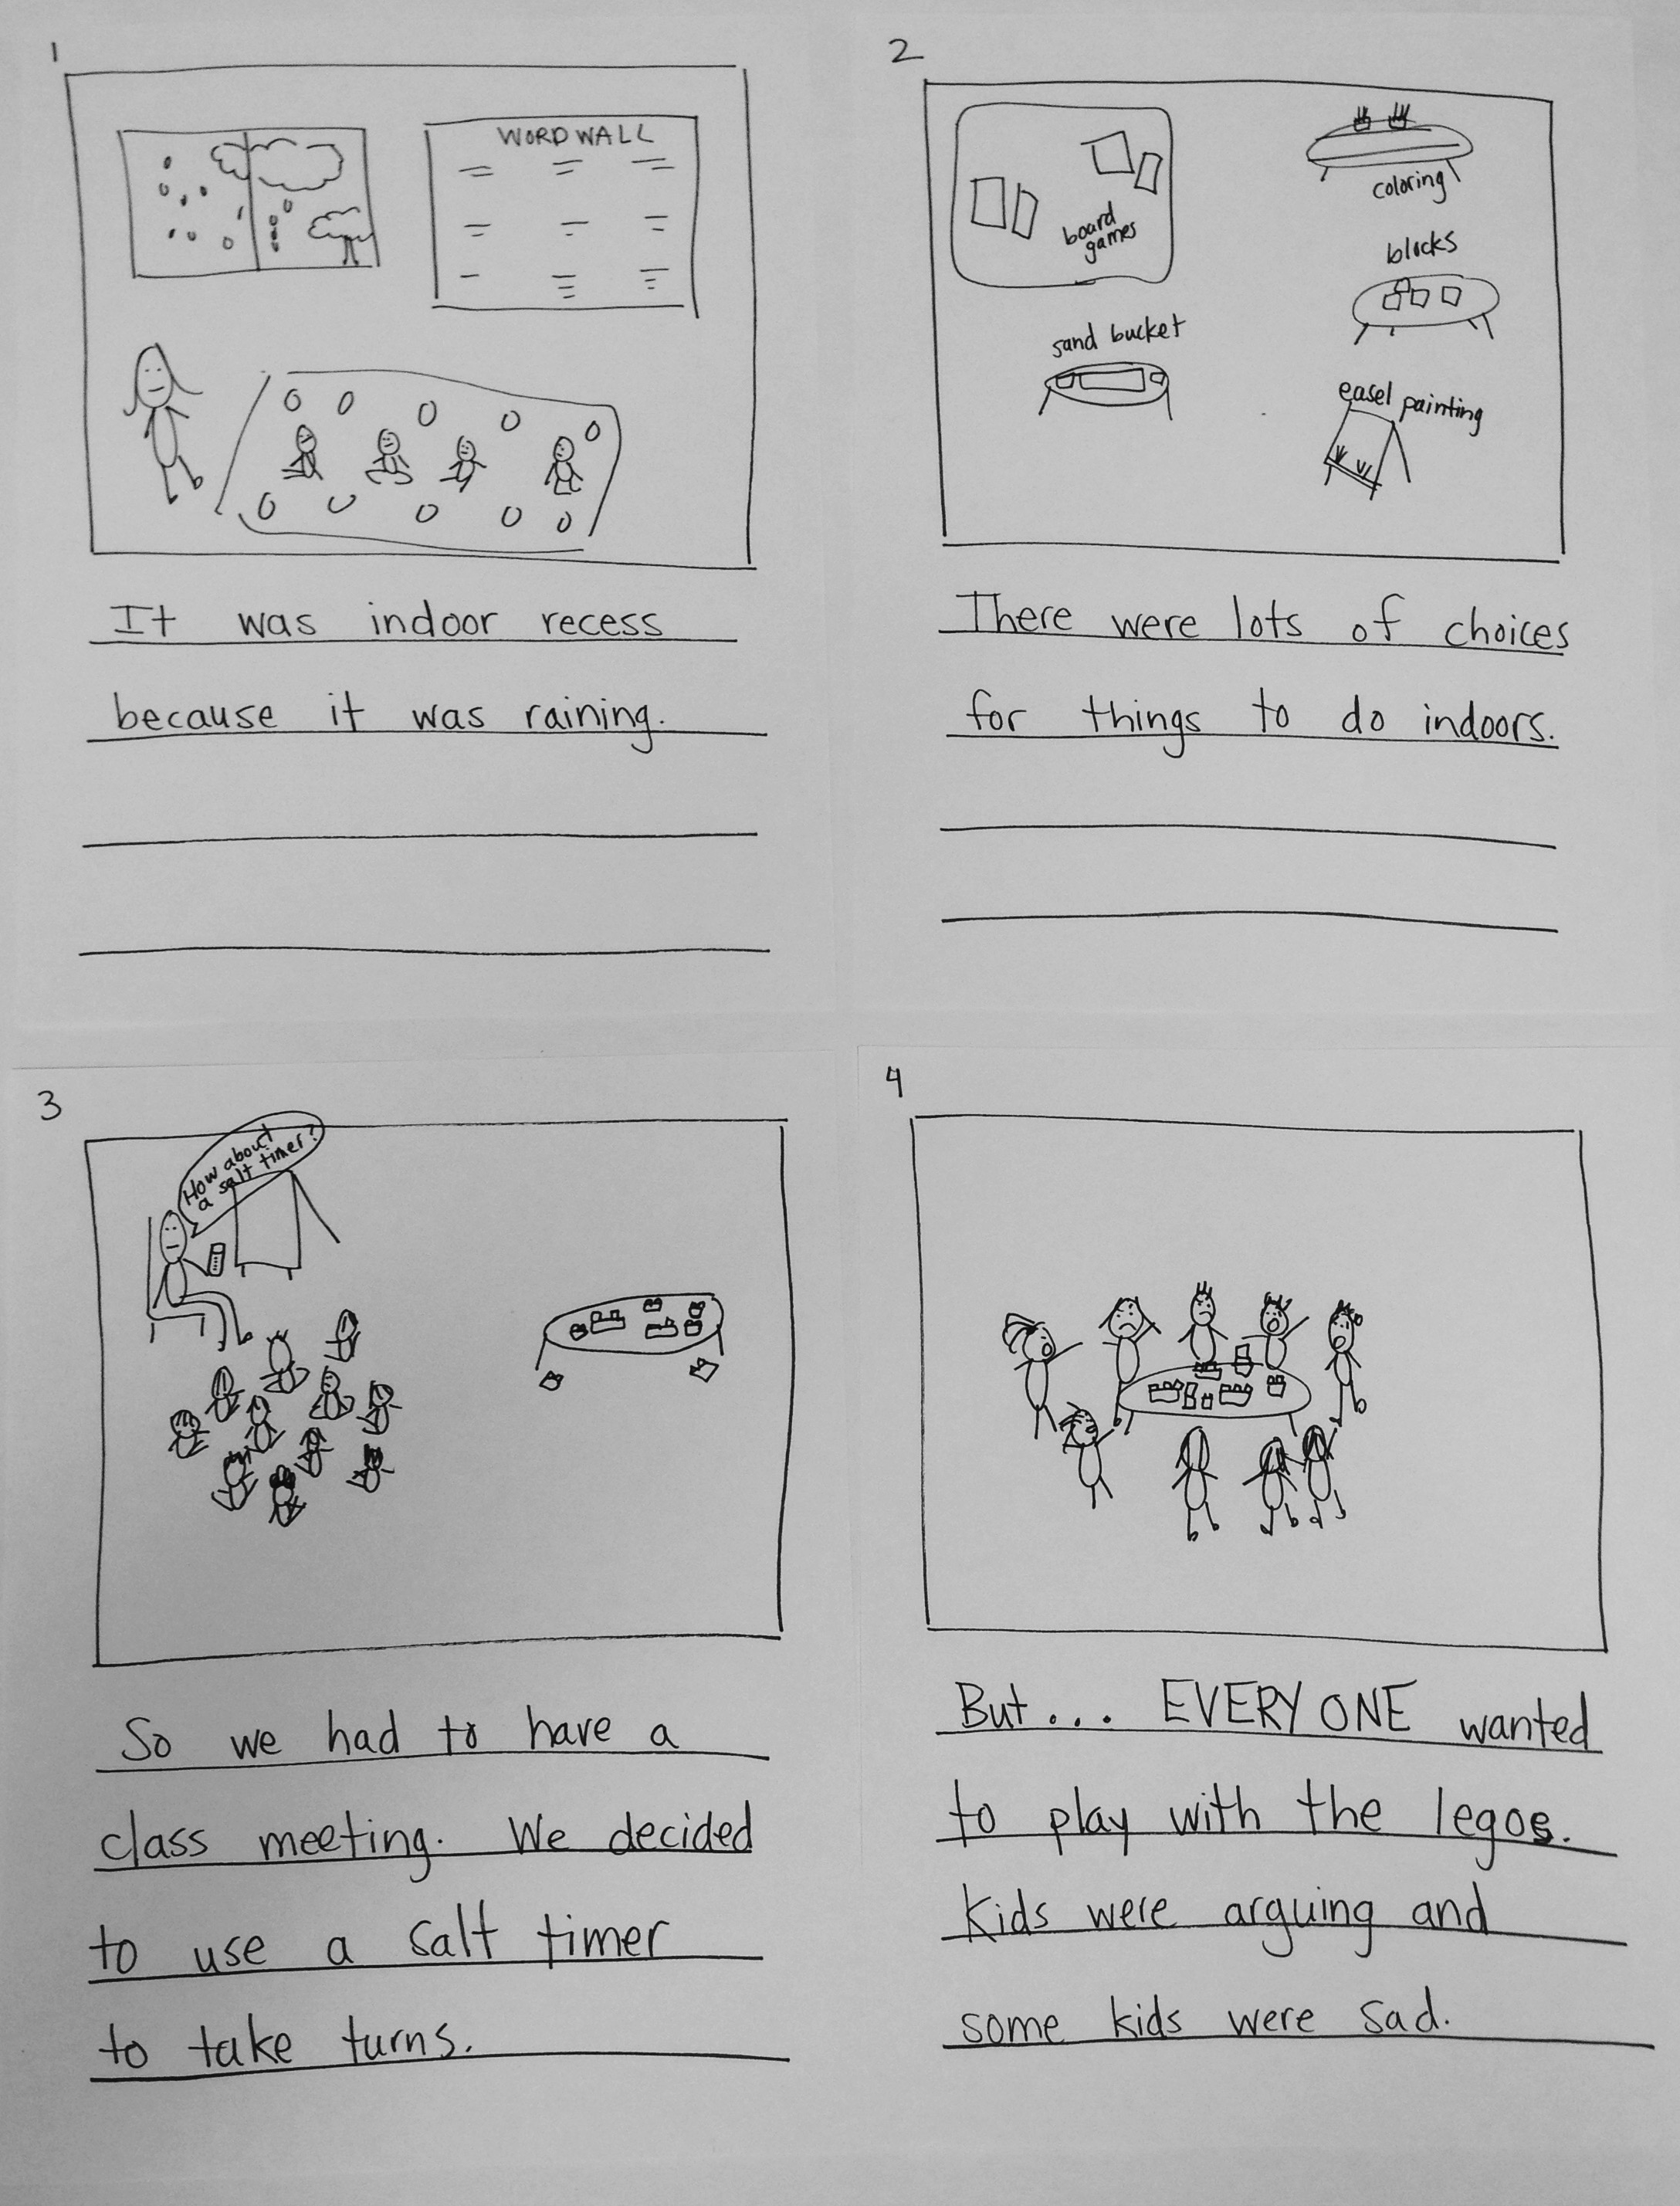 1
WORD WALL
It was indoor recess
because it was raining.
2
board
games
coloring
blocks
sand bucket
easel painting
There were lots of choices
for things to do indoors.
3
How about
a salt timer?
So we had to have a
class meeting. We decided
to use a salt timer
to take turns.
4
But... EVERYONE wanted
to play with the legos.
Kids were arguing and
some kids were sad.